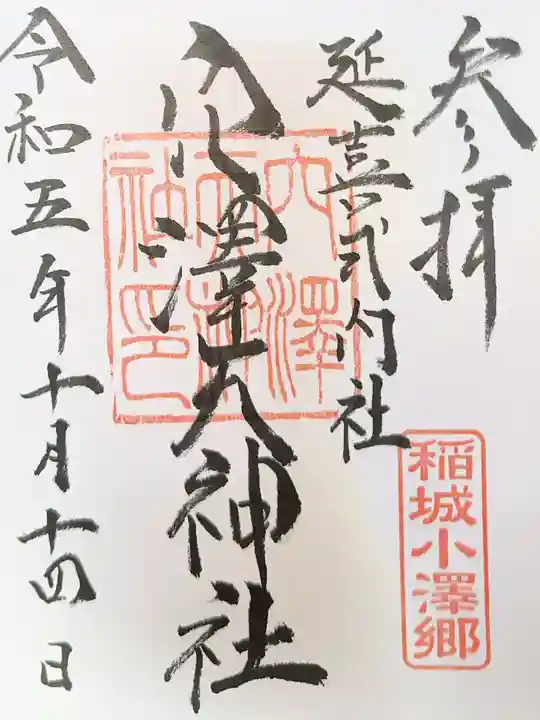 参拝
延喜式内社
穴澤天神社
令和五年十月十四日
稲城小澤郷
穴澤
天神
社印